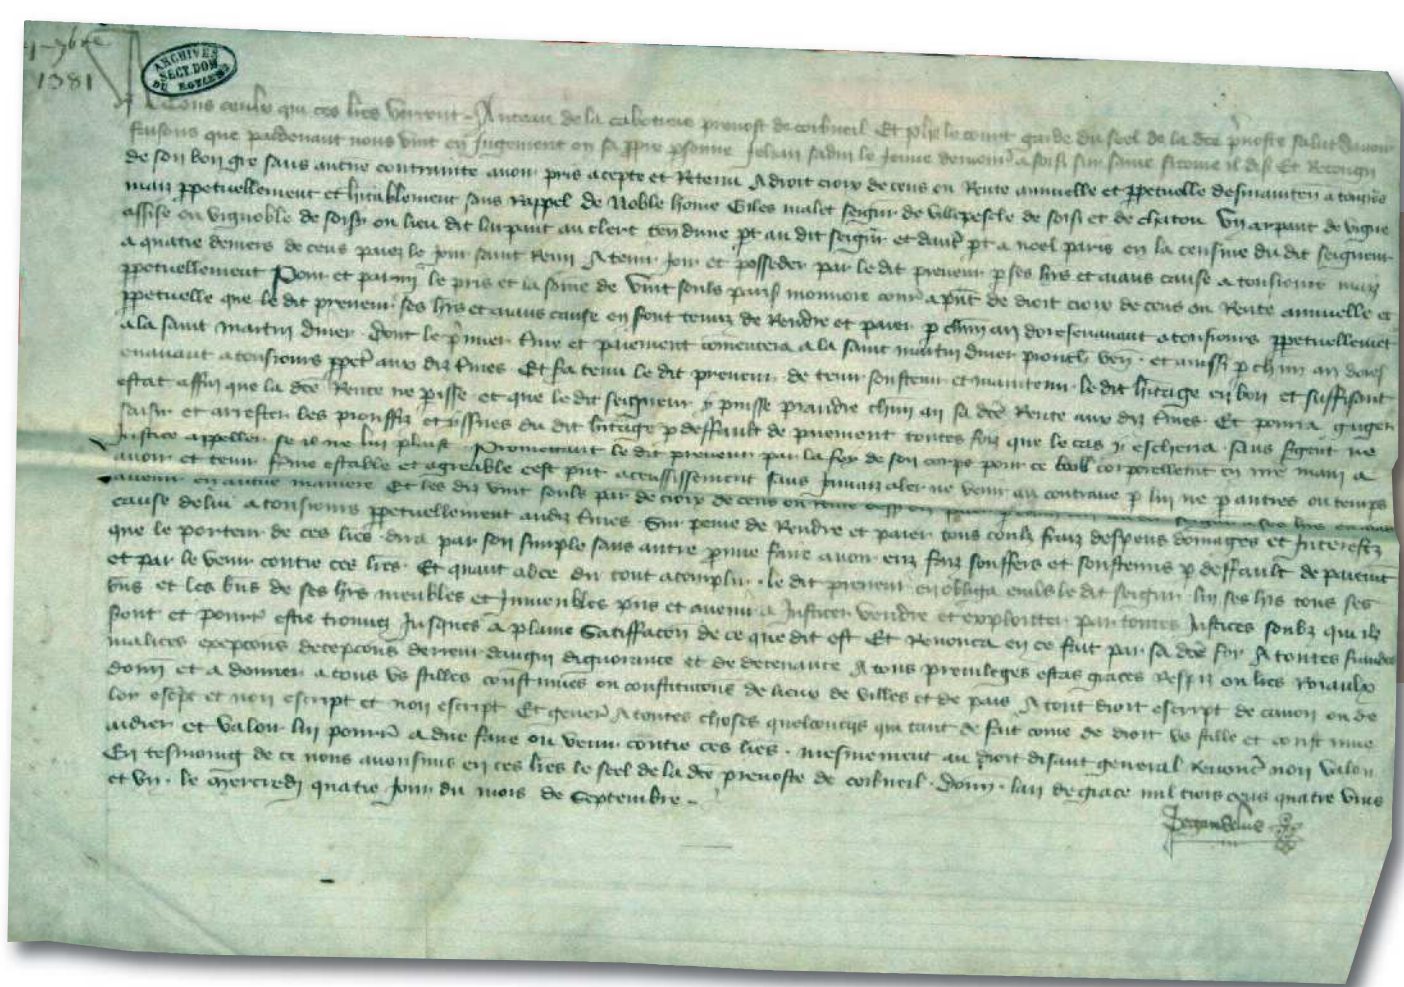 4 7bre
1381
ARCHIVES
SECT. DOM.
DU ROYAUME
A Tous ceulx qui ces lres verront Anceau de la cabotiere prevost de corbueil Et le conut garde du seel de la dce pvoste salut
faisons que pardevant nous vint en Jugement en sa ppre psonne Jehan le Jeune demour a soisi sur saine sicome il dist Et Recongn
de son bon gre sans autne contrainte avoir pris acepte et Retenu A droit croix de cens ou Rente annuelle et ppetuelle desmainten a tousios
maiz ppetuellement et hitablement sans rappel de Noble home Giles malet seigur de villepescle de soisi et de chatou Un arpant de vigne
assise ou vignoble de soisi ou lieu dit au clerc ten dune pt au dit seignr et daut pt a noel paris en la censive du dit seigneur
a quatre deniers de cens paiez le jour saint Remi A tenir Joir et posseder par le dit preneur p ses hrs et aians cause a tousiours maiz
ppetuellement Pour et parmi le pris et la some de Vint souls paris monnoie cour a pnt de droit croix de cens ou Rente annuelle et
ppetuelle que le dit preneur ses hrs et aians cause en sont tenuz de Rendre et paier p chun an doresenavant a tousiours ppetuellemet
a la saint martin diver dont le pmier tme et paiement comencera a la saint martin diver prouch ven et ainssi p chun an dores
enavant a tousiours ppet aux diz tmes Et sa tenu le dit preneur de tenir soustenir et maintenir le dit hitage en bon et suffisant
estat affin que la dce Rente ne pisse et que le dit seigneur y puisse prandre chun an sa dce Rente aux diz tmes Et pourra gager
saisir et arrester les prouffiz et yssues du dit hitage p deffault de paiement toutes foiz que le cas y escherra sans sgent ne
Justice appeller se il ne lui plaist Promettant le dit preneur par la foy de son corps pour ce corporellemt en nre main a
avoir et tenir fme estable et agreable cest pnt acensissement sans Jamaiz aler ne venir au contraire p lui ne p autres ou temps
avenir en autne maniere Et les diz vint souls par de croix de cens ou rente
cause de lui a tousiours ppetuellement audiz tmes Sur peine de Rendre et paier tous coulz fraiz despens domages et Interestz
que le porteur de ces lres dira par son simple sans autre pruve faire avoir euz faiz souffers et soustenus p deffault de paiemt
et par le venir contre ces lres Et quant adce du tout acomplir le dit preneur en obliga envs le dit seigur lui ses hrs tous ses
bns et les bns de ses hrs meubles et Inmeubles pns et avenir a Justicer vendre et exploitter par toutes Justices soubz qui ilz
sont et pourr estre trouvez Jusques a plaine Satiffacon de ce que dit est Et Renonca en ce fait par sa dce foy A toutes fraudes
malices excepcons decepcons derreur dengin dignorance et de decevance A tous previleges estas graces Respiz ou lres roiaulx
donn et a donner a tous us stilles coustumes ou constitucons de lieux de villes et de pais A tout droit escript de canon ou de
loy escpt et non escript et non escript Et gener A toutes choses quelconqs qui tant de fait come de droit us stille et coustume
aidier et valoir lui pourr a dire faire ou venir contre ces lres mesmement au droit disant general Renonc non valoir
En tesmoing de ce nous avons mis en ces lres le seel de la dce prevoste de corbueil donn lan de grace mil trois cens quatre vins
et un le mercredi quatre jour du mois de Septembre